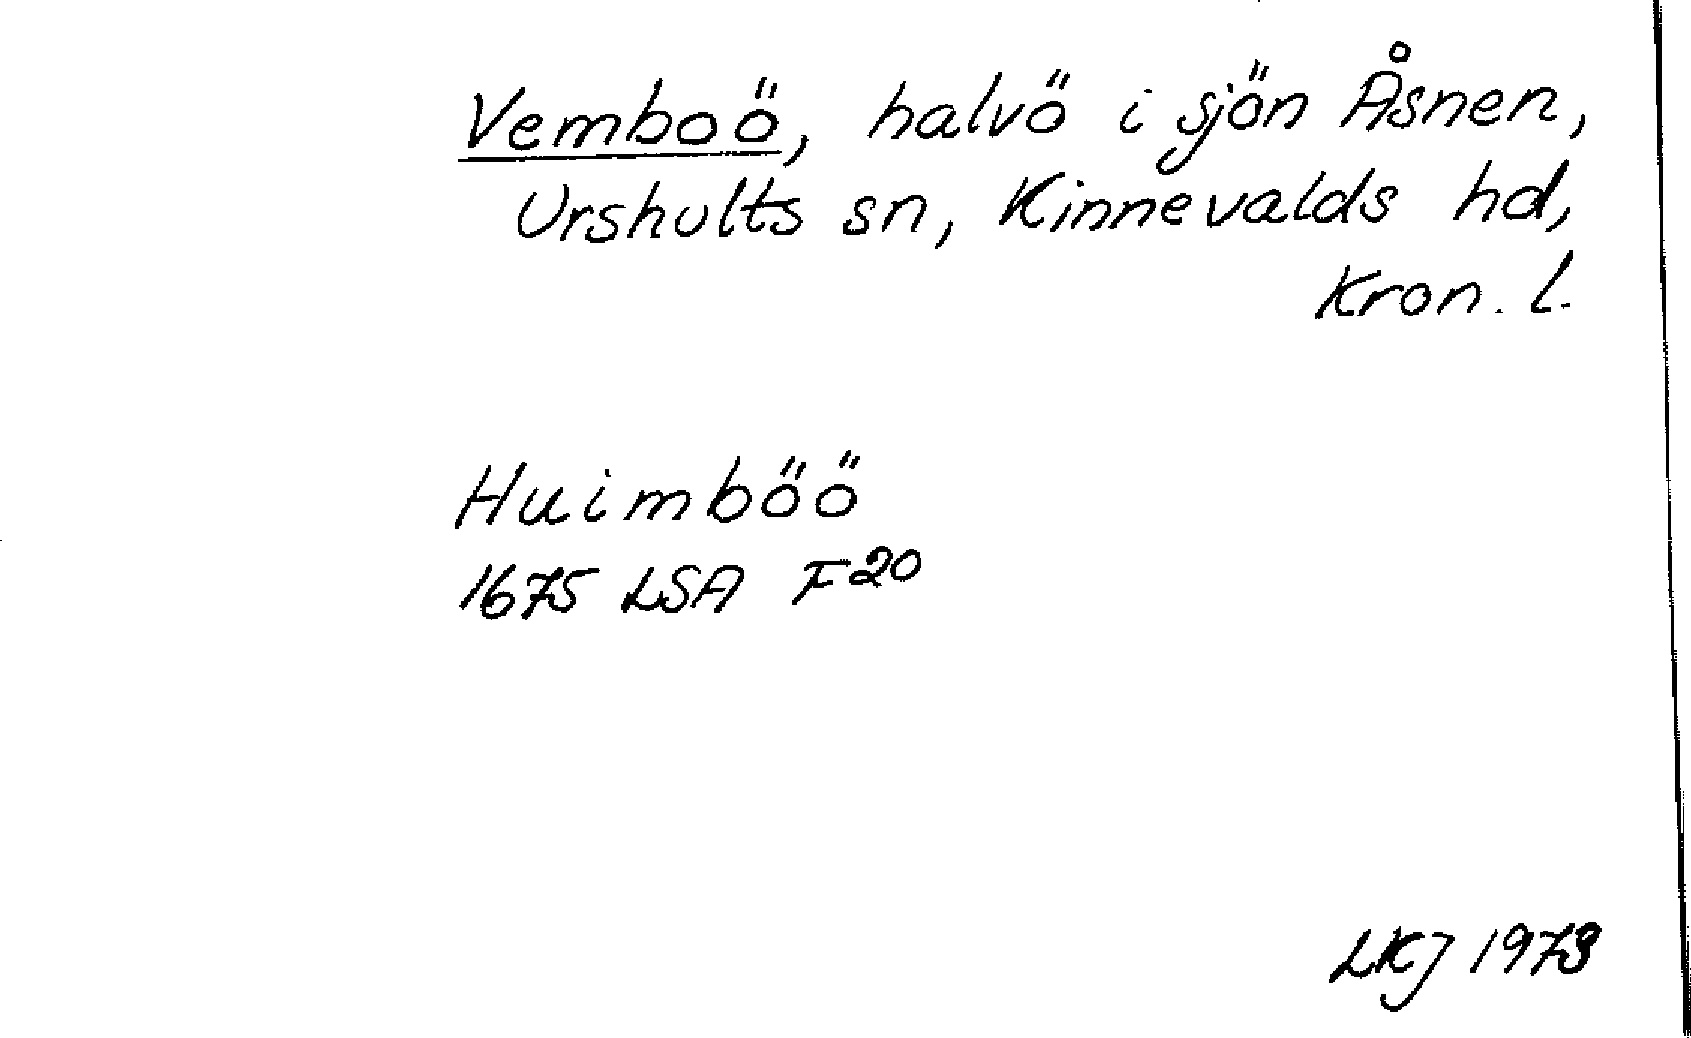 Vemboö, halvö i sjön Åsnen,
Urshults sn, Kinnevalds hd,
Kron. l.
Huimböö
1675 LSA F20
LKJ 1973